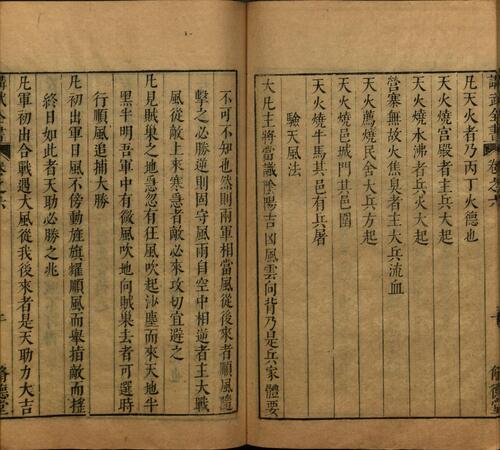 講武全書
卷之六
凡天火者乃丙丁火德也
天火燒宮殿者主兵大起
天火燒水沸者兵火大起
營寨無故火焦臭者主大兵流血
天火薦燒民舍大兵方起
天火燒邑城門其邑圍
天火燒牛馬其邑有兵屠
驗天風法
大凡主將當識陰陽吉凶風雲向背乃是兵家體要
脩德堂
不可不知也然則兩軍相當風從後來者順風隨
擊之必勝逆則固守風雨自空中相逆者主大戰
風從敵上來寒急者敵必來攻切宜避之
凡見賊巢之地急忽有狂風吹起沙塵而來天地半
黑半明吾軍中有微風吹地向賊巢去者可選時
行順風追捕大勝
凡初出軍日風不傍動旌旗耀順風而舉指敵而搖
終日如此者天助必勝之兆
凡軍初出合戰遇大風從我後來者是天助力大吉
講武全書
卷之六
脩德堂